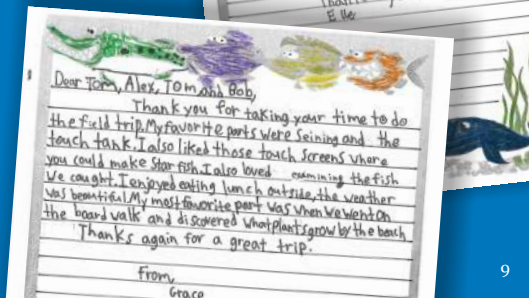 Thank
Elle
Dear Tom, Alex, Tom and Bob,
Thank you for taking your time to do
the field trip. My favorite parts were Seining and the
touch tank. I also liked those touch screens where
you could make Starfish. I also loved examining the fish
we caught. I enjoyed eating lunch outside, the weather
was beautiful. My most favorite part was when we went on
the board walk and discovered what plants grow by the beach
Thanks again for a great trip.
From,
Grace
9